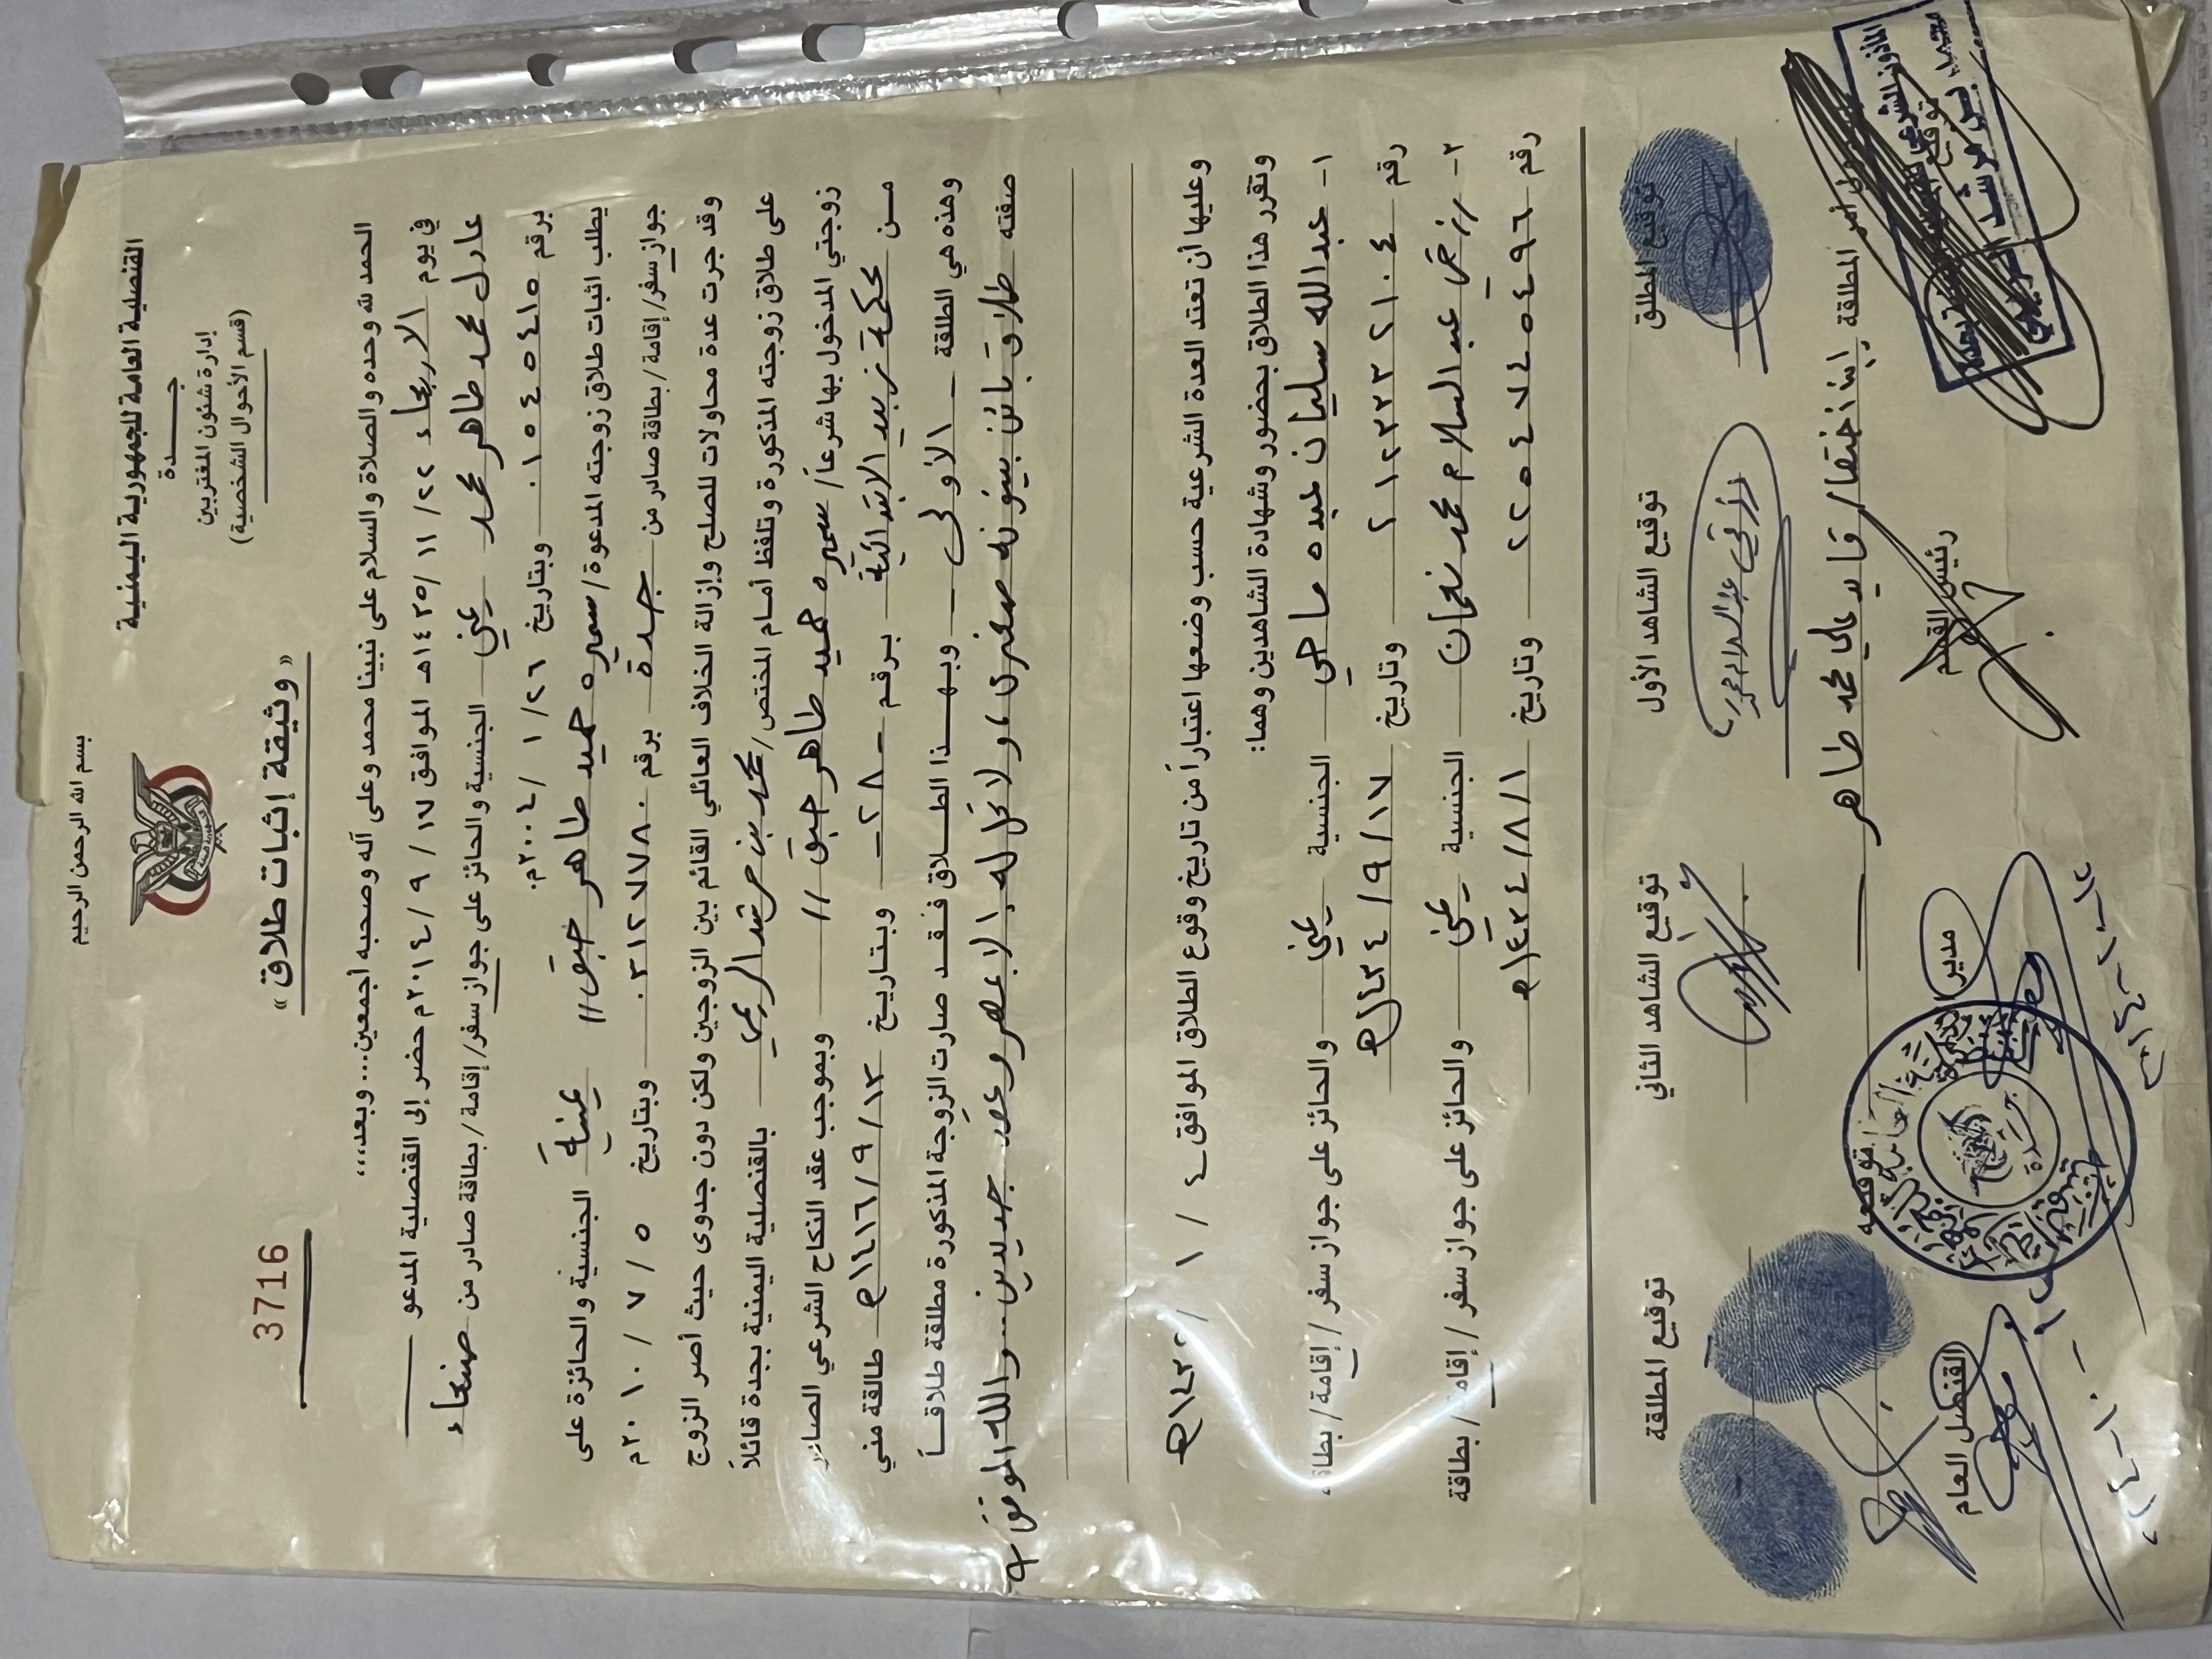 بسم الله الرحمن الرحيم
القنصلية العامة للجمهورية اليمنية
جـــــدة
إدارة شئون المغتربين
(قسم الأحوال الشخصية)
«وثيقة إثبات طلاق»
3716
الحمد لله وحده والصلاة والسلام على نبينا محمد وعلى آله وصحبه أجمعين... وبعد،،،،
في يوم الاربعاء ٢٢ / ١١ / ١٤٣٥هـ الموافق ١٧ / ٩ / ٢٠١٤م حضر إلى القنصلية المدعو
عادل محمد طاهر محمد يمني الجنسية والحائز على جواز سفر/ إقامة / بطاقة صادر من صنعاء
برقم ٠١٥٤٥٤١٥ وبتاريخ ٢٦ / ١ / ٢٠٠٤م.
يطلب اثبات طلاق زوجته المدعوة/ سميره حميد طاهر حبق // يمنية الجنسية والحائزة على
جواز سفر/ إقامة / بطاقة صادر من جدة برقم ٠٣١٢٧٧٨٠ وبتاريخ ٥ / ٧ / ٢٠١٠م
وقد جرت عدة محاولات للصلح وإزالة الخلاف العائلي القائم بين الزوجين ولكن دون جدوى حيث أصر الزوج
على طلاق زوجته المذكورة وتلفظ أمام المختص/ محمد بن مرشد الريمي بالقنصلية اليمنية بجدة قائلاً
زوجتي المدخول بها شرعاً/ سميره حميد طاهر حبق // وبموجب عقد النكاح الشرعي الصادر
من محكمة زبيد الابتدائية برقم ٢٨ وبتاريخ ١٣ / ٩ / ١٤١٦هـ طالقة مني
وهذه هي الطلقة الأولى وبهذا الطلاق فقد صارت الزوجة المذكورة مطلقة طلاقاً
صفته طلاق بائن بينونه صغرى، ولا تحل له إلا بمهر وعقد جديدين .. والله الموفق
وعليها أن تعتد العدة الشرعية حسب وضعها اعتباراً من تاريخ وقوع الطلاق الموافق ٤ / ١ /
وتقرر هذا الطلاق بحضور وشهادة الشاهدين وهما:
١- عبدالله سليمان عبده ماحي الجنسية يمني والحائز على جواز سفر / إقامة / بطاقة
رقم ٢١٢٣٣٢١٠٤ وتاريخ ١٧ / ٩ / ١٤٣٤هـ
٢- رزقي عبدالسلام محمد نعمان الجنسية يمني والحائز على جواز سفر / إقامة / بطاقة
رقم ٢٢٥٤٧٤٥٤٩٦ وتاريخ ١ / ٨ / ١٤٣٤هـ
توقيع المطلق توقيع الشاهد الأول توقيع الشاهد الثاني توقيع المطلقة
رزقي عبدالسلام محمد
ولي أمر المطلقة قايد علي محمد طاهر توقيعه
المأذون الشرعي
رئيس القسم مدير القنصل العام
جدة